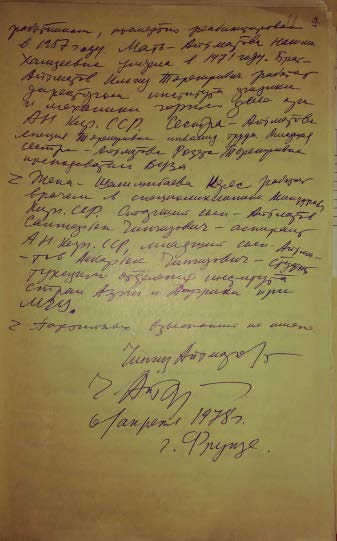 3
работником, посмертно реабилитирован
в 1957 году. Мать - Айтматова Нагима
Хамзеевна умерла в 1971 году. Брат -
Айтматов Ильгиз Торекулович работает
директором института физики
и механики горных пород при
АН Кирг. ССР. Сестра - Айтматова
Люция Торекуловна инвалид труда. Младшая
сестра - Айтматова Роза Торекуловна
преподаватель ВУЗа.
Жена - Шамшибаева Керез работает
врачом в спецполиклинике Минздрава
Кирг. ССР. Старший сын - Айтматов
Санжарбек Чингизович - аспирант
АН Кирг. ССР, младший сын - Айтма-
тов Аскарбек Чингизович - студент
турецкого отделения института
стран Азии и Африки при
МГУ.
Партийных взысканий не имею
Чингиз Айтматов
Ч. Айт
6 апреля 1978 г.
г. Фрунзе.